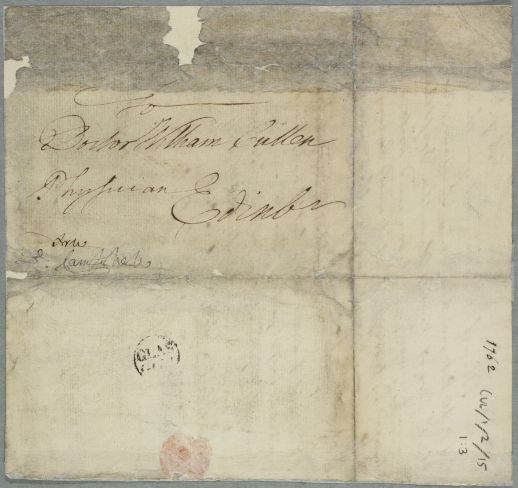 To
Doctor William Cullen
Physician Edinbr
GLAS
GOW
1762 CUL/1/2/15
1:3